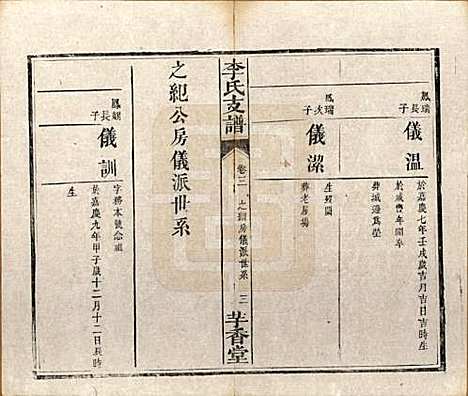 鳳瑞長子
儀溫
於嘉慶七年壬戌歲吉月吉日吉時生
於咸豐年間卒
葬城邊為塋
鳳瑞次子
儀潔
生歿闕
葬老房場
李氏支譜
卷三
之綱房儀派世系
三
芋香堂
之紀公房儀派世系
長子
儀訓
字務本號念祖
於嘉慶九年甲子歲十二月十二日辰時
生